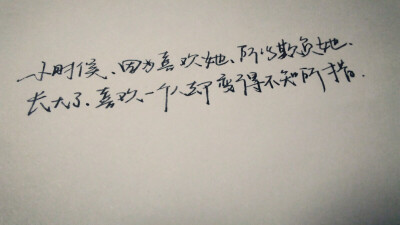 小时侯、因为喜欢她、所以欺负她、
长大了、喜欢一个人却变得不知所措.